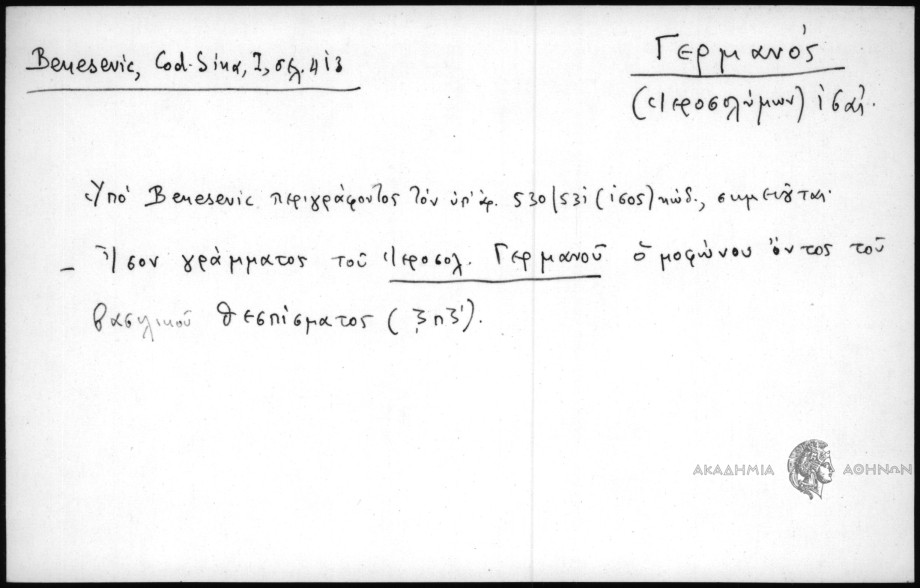 Benesenic, Cod. Sina, I, σελ. 413
Γερμανός
(Ἱεροσολύμων) ισαι.
Ὑπό Benesenic περιγράφοντος τόν ὑπ' ἀρ. 530/531 (ισος) κώδ., σημειοῦται·
– Ἴσον γράμματος τοῦ Ἱεροσολ. Γερμανοῦ ὁμοφώνου ὄντος τοῦ
βασιλικοῦ θεσπίσματος
ΑΚΑΔΗΜΙΑ ΑΘΗΝΩΝ